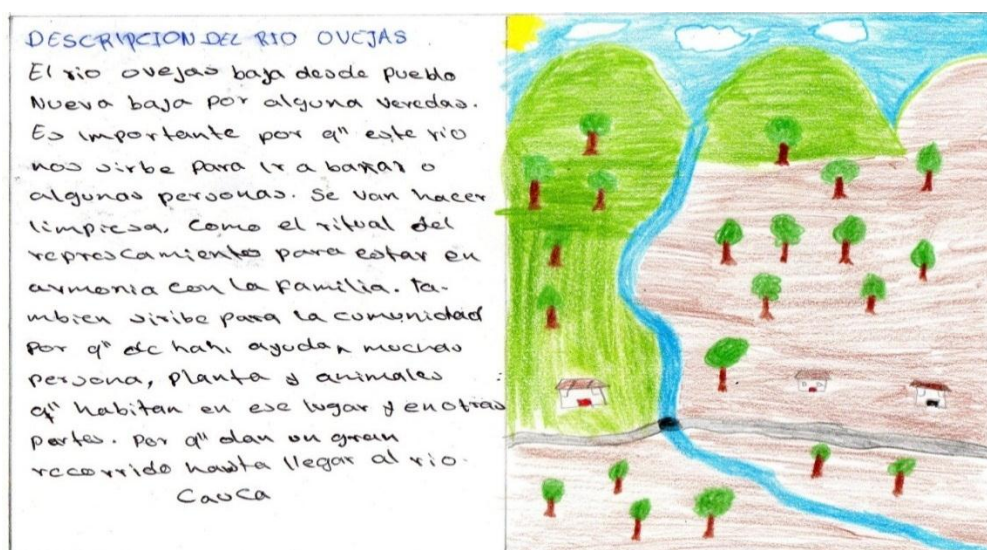 DESCRIPCION DEL RIO OVEJAS
El rio ovejas baja desde pueblo
Nueva baja por alguna veredas.
Es importante por q" este rio
nos sirbe para ir a bañar o
algunas personas. Se van hacer
limpiesa, como el ritual del
represcamiento para estar en
armonia con la familia. ta-
mbien siribe para la comunidad
por q" de hahi ayudan muchas
persona, planta y animales
q" habitan en ese lugar y en otras
partes. por q" dan un gran
recorrido hasta llegar al rio.
Cauca